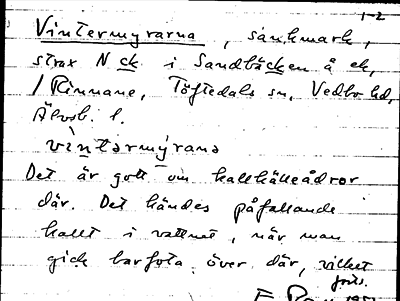 1-2
Vintermyrarna, sankmark,
strax N ck i Sandbäcken å ek,
/ Rinnane, Töftedals sn, Vedbo hd,
Älvsb. l.
vìntərmýrana
Det är gott om kallkälleådror
där. Det kändes påfallande
kallt i vattnet, när man
gick barfota över där, vilket
förs.